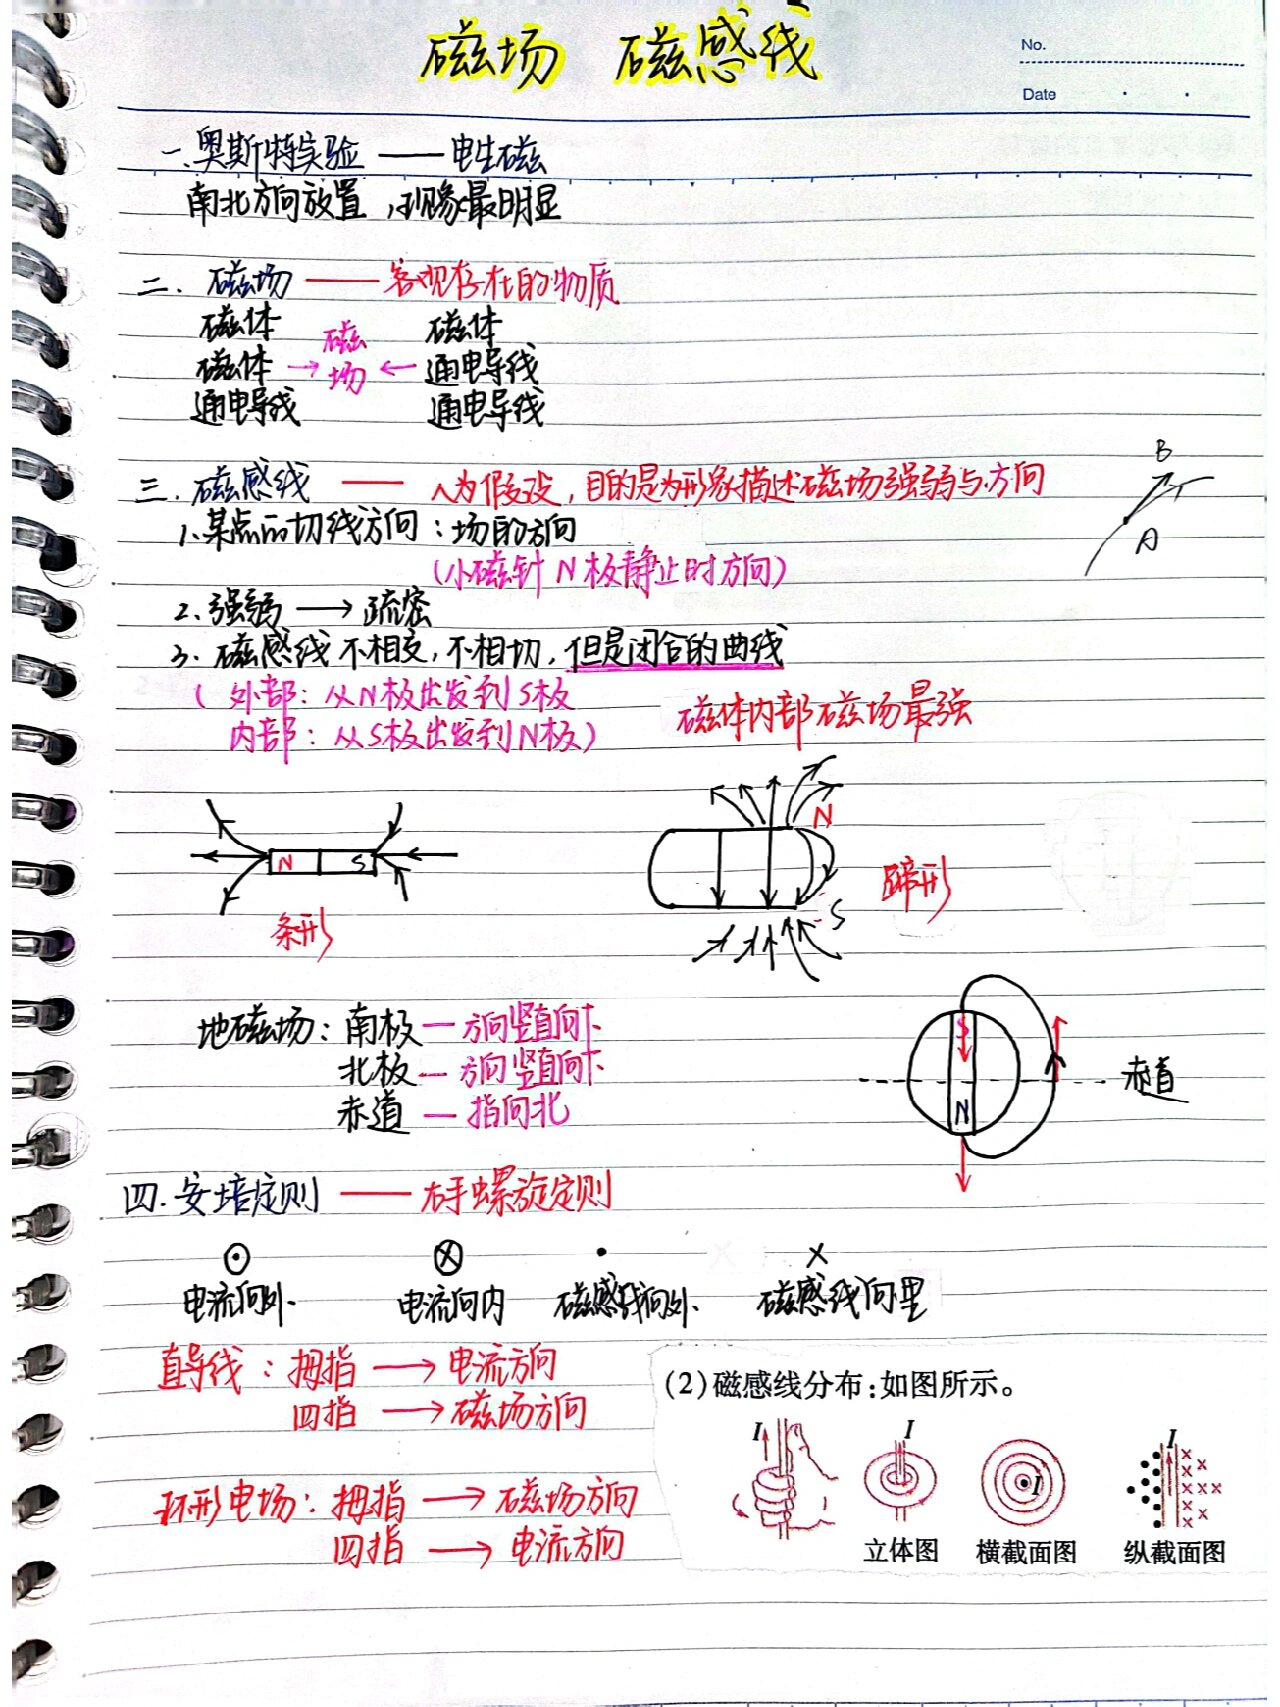 磁场 磁感线
No.
Date
一.奥斯特实验 —— 电生磁
南北方向放置,现象最明显
二. 磁场 —— 客观存在的物质
磁体 磁 磁体
磁体 → 场 ← 通电导线
通电导线 通电导线
三.磁感线 —— 人为假设,目的是为形象描述磁场强弱与方向
B
A
1.某点的切线方向:场的方向
(小磁针N极静止时方向)
2.强弱 → 疏密
3.磁感线不相交,不相切,但是闭合的曲线
(外部:从N极出发到S极
内部:从S极出发到N极)
磁体内部磁场最强
N S
条形
N
S
蹄形
地磁场:南极—方向竖直向下
北极—方向竖直向下
赤道—指向北
S
N
赤道
四.安培定则 —— 右手螺旋定则
⊙ ⊗ • ×
电流向外. 电流向内 磁感线向外. 磁感线向里
直导线:拇指 → 电流方向
四指 → 磁场方向
环形电场:拇指 → 磁场方向
四指 → 电流方向
(2)磁感线分布:如图所示。
I I I I
立体图 横截面图 纵截面图